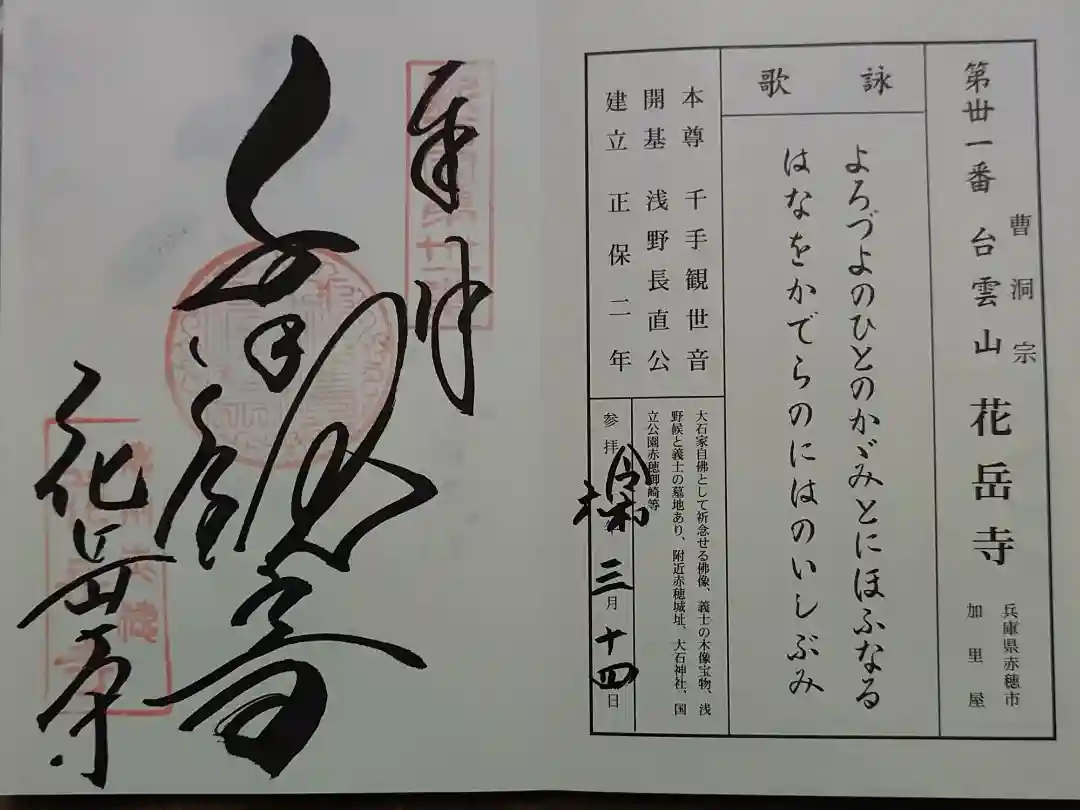 曹洞宗
第丗一番 台雲山 花岳寺
兵庫県赤穂市
加里屋
詠歌
よろづよのひとのかゞみとにほふなる
はなをかでらのにはのいしぶみ
本尊 千手観世音
開基 浅野長直公
建立 正保二年
大石家自佛として祈念せる佛像、義士の木像宝物、浅
野候と義士の墓地あり、附近赤穂城址、大石神社、国
立公園赤穂御崎等
参拝 三月十四日
奉拝
千手観音
花岳寺